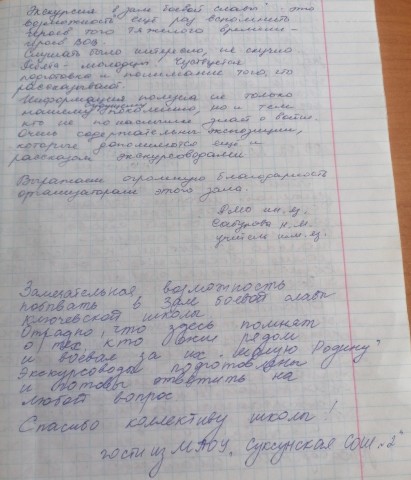 Экскурсия в зал боевой славы" - это
возможность ещё раз вспомнить
героев того тяжелого времени -
героев ВОВ.
Слушать было интересно, не скучно.
Ребята - молодцы! Чувствуется
подготовка и понимание того, что
рассказывают.
Информация полезна не только
нашему поколению, но и тем
кто не понаслышке знает о войне.
Очень содержательны экспозиции,
которые дополняются ещё и
рассказом экскурсоводами
Выражаем огромную благодарность
организаторам этого зала.
РМО ин. яз.
Н. М.
учитель ин. яз.
Замечательная возможность
побывать в зале боевой славы
Ключевской школы.
Отрадно, что здесь помнят
о тех, кто жил рядом
и воевал за их Родину"
Экскурсоводы подготовлены
и готовы ответить на
любой вопрос
Спасибо коллективу школы!
гости из МАОУ „Суксунская СОШ №2"